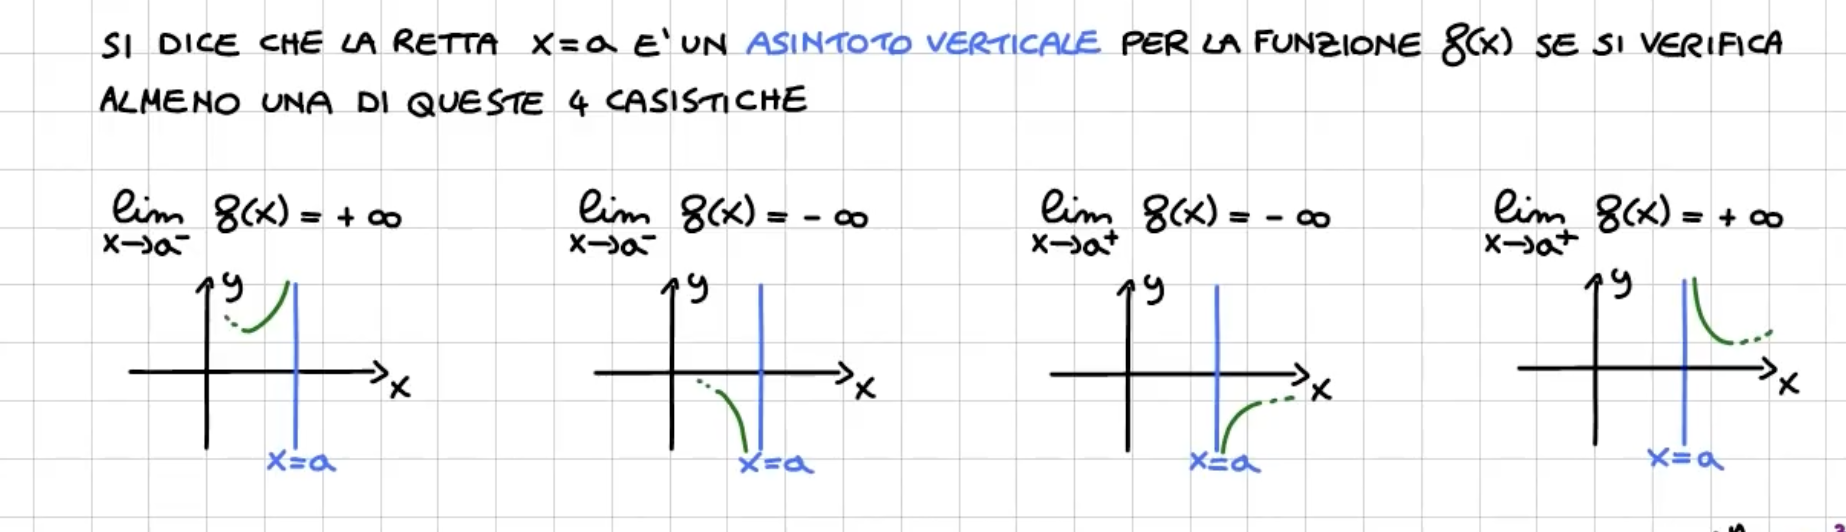 SI DICE CHE LA RETTA x=a E' UN ASINTOTO VERTICALE PER LA FUNZIONE f(x) SE SI VERIFICA
ALMENO UNA DI QUESTE 4 CASISTICHE
lim x→a⁻ f(x) = +∞
lim x→a⁻ f(x) = -∞
lim x→a⁺ f(x) = -∞
lim x→a⁺ f(x) = +∞
y
x
x=a
y
x
x=a
y
x
x=a
y
x
x=a